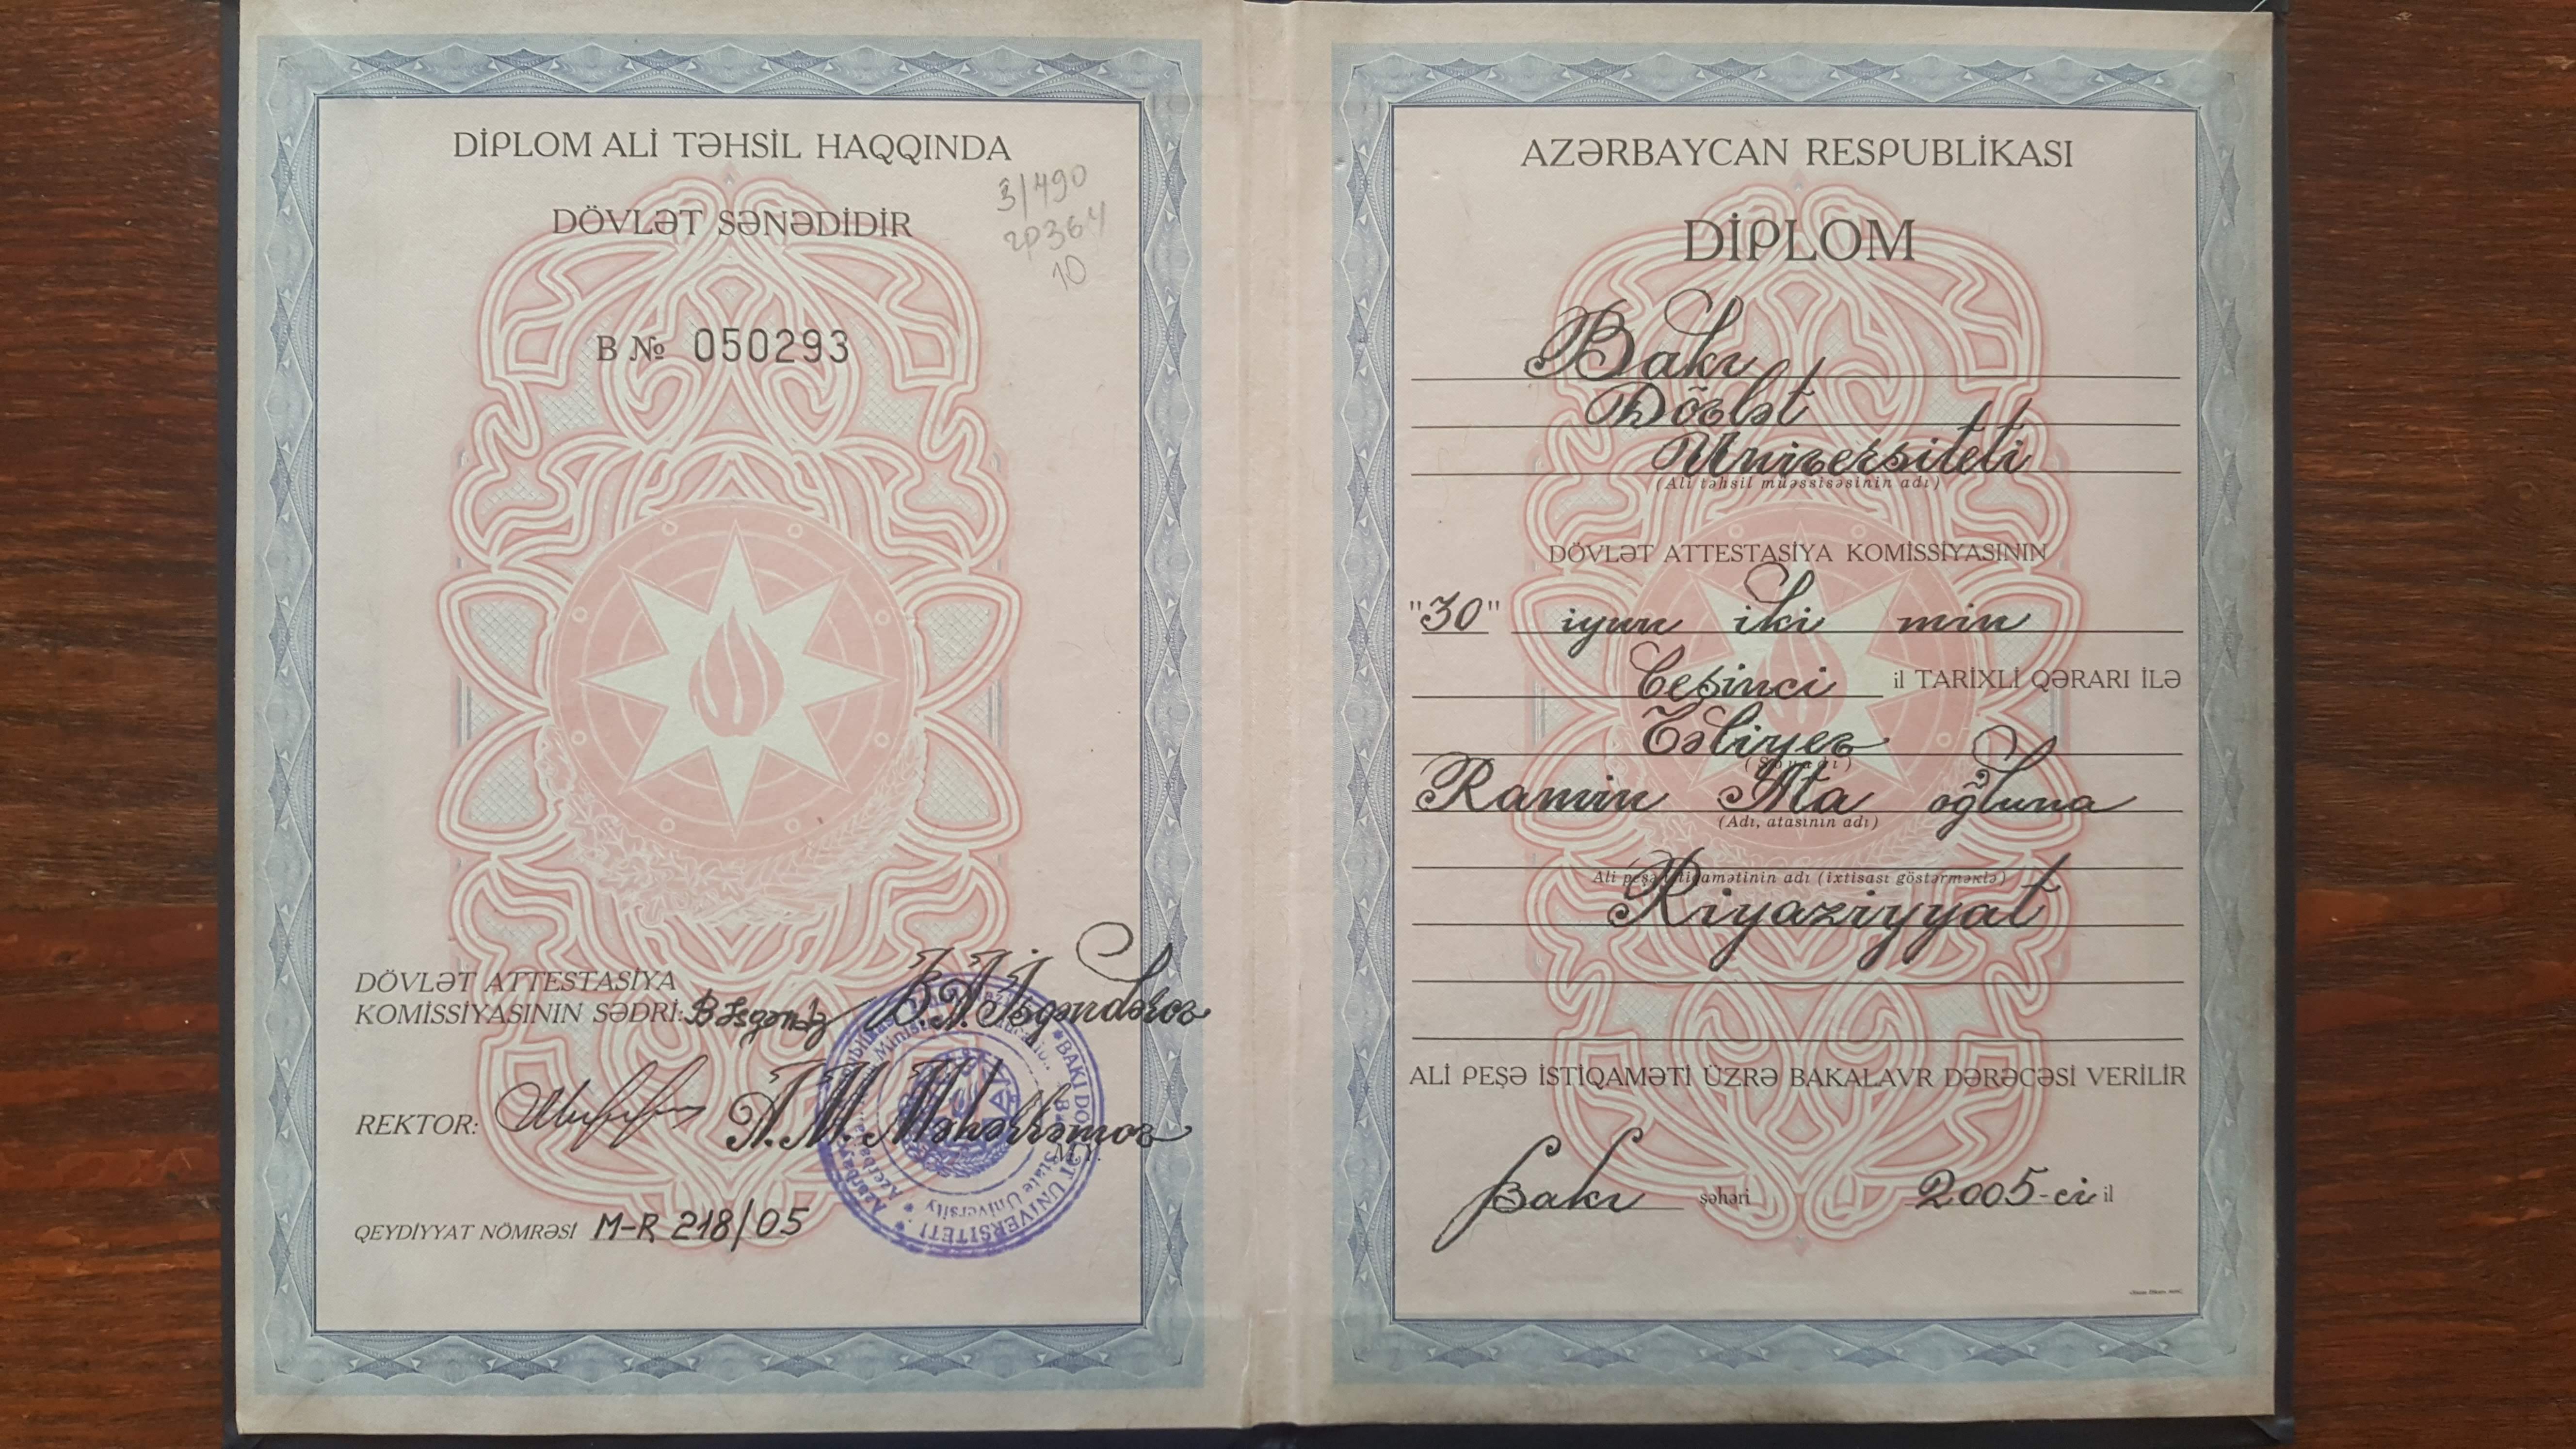 DİPLOM ALİ TƏHSİL HAQQINDA
DÖVLƏT SƏNƏDİDİR
3/490
10
B № 050293
DÖVLƏT ATTESTASİYA
KOMİSSİYASININ SƏDRİ: B.A. İsgəndərov
REKTOR: A.M. Məhərrəmov
M.Y.
QEYDİYYAT NÖMRƏSİ M-R 218/05
BAKI DÖVLƏT UNİVERSİTETİ
State University
AZƏRBAYCAN RESPUBLİKASI
DİPLOM
Bakı
Dövlət
Universiteti
(Ali təhsil müəssisəsinin adı)
DÖVLƏT ATTESTASİYA KOMİSSİYASININ
"30" iyun iki min
beşinci il TARİXLİ QƏRARI İLƏ
(Soyadı)
Ramin Ata oğluna
(Adı, atasının adı)
Ali peşə istiqamətinin adı (ixtisası göstərməklə)
Riyaziyyat
ALİ PEŞƏ İSTİQAMƏTİ ÜZRƏ BAKALAVR DƏRƏCƏSİ VERİLİR
Bakı şəhəri 2005-ci il